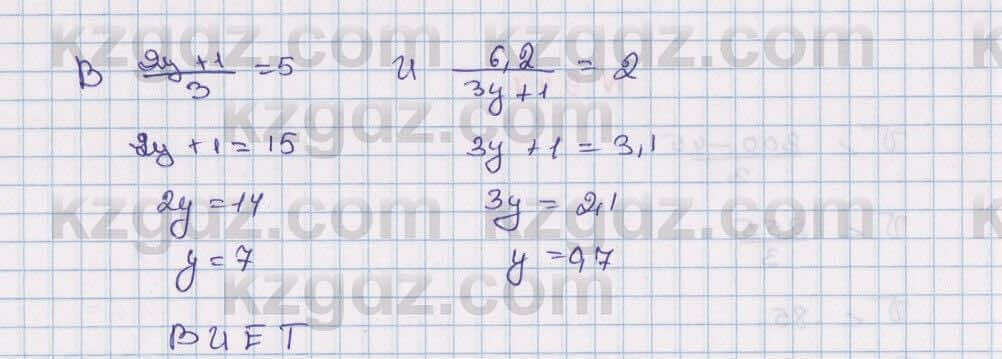 kzgdz.com kzgdz.com
В (2y + 1)/3 = 5 И 6,2/(3y + 1) = 2
kzgdz.com
2y + 1 = 15 3y + 1 = 3,1
kzgdz.com kzgdz.com
2y = 14 3y = 2,1
y = 7 y = 0,7
kzgdz.com
В И Е Т